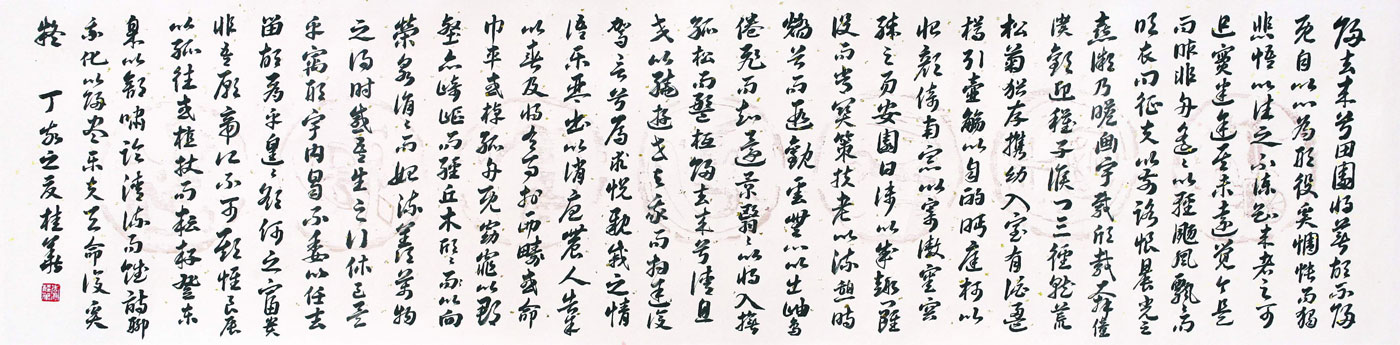 歸去來兮田園將蕪胡不歸
既自以心為形役奚惆悵而獨
悲悟以往之不諫知來者之可
追實迷途其未遠覺今是
而昨非舟遙遙以輕颺風飄飄而
吹衣問征夫以前路恨晨光之
熹微乃瞻衡宇載欣載奔僮
僕歡迎稚子候門三徑就荒
松菊猶存攜幼入室有酒盈
樽引壺觴以自酌眄庭柯以
怡顏倚南窗以寄傲審容
膝之易安園日涉以成趣雖
設而常關策扶老以流憩時
矯首而遐觀雲無心以出岫鳥
倦飛而知還景翳翳以將入撫
孤松而盤桓歸去來兮請息
交以絕遊世與我而相違復
駕言兮焉求悅親戚之情
話樂琴書以消憂農人告余
以春及將有事於西疇或命
巾車或棹孤舟既窈窕以尋
壑亦崎嶇而經丘木欣欣而以向
榮泉涓涓而始流善萬物
之得時感吾生之行休已矣
乎寓形宇內曷不委心任去
留胡為乎遑遑欲何之富貴
非吾願帝鄉不可期懷良辰
以孤往或植杖而耘耔登東
皋以舒嘯臨清流而賦詩聊
乘化以歸盡樂夫天命復奚
疑 丁亥之夏桂華